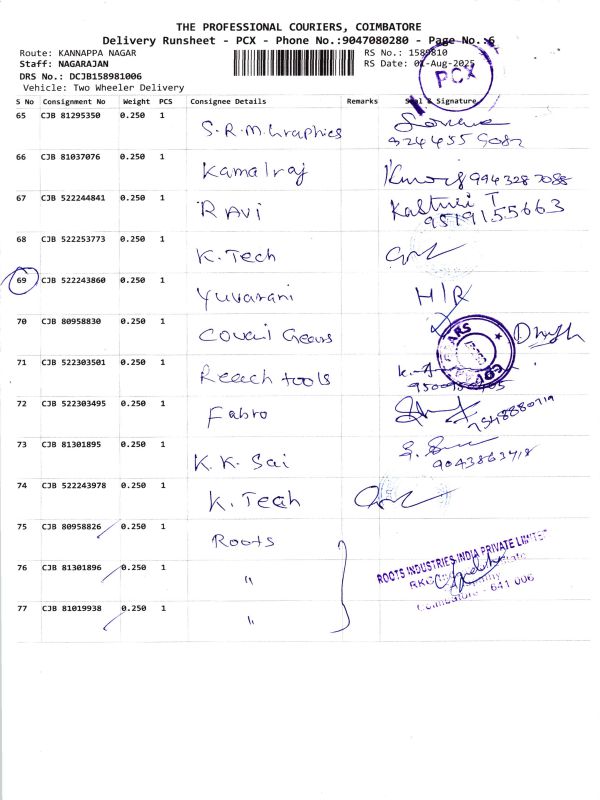 THE PROFESSIONAL COURIERS, COIMBATORE
Delivery Runsheet - PCX - Phone No.:9047080280 - Page No.:6
Route: KANNAPPA NAGAR RS No.: 1589810
Staff: NAGARAJAN RS Date: -Aug-2025
DRS No.: DCJB158981006
Vehicle: Two Wheeler Delivery
PCX
S No Consignment No Weight PCS Consignee Details Remarks Seal & Signature
65 CJB 81295350 0.250 1 S.R.M.Graphics
66 CJB 81037076 0.250 1 Kamalraj 9943287088
67 CJB 522244841 0.250 1 RAVI Kasturi T
9519155663
68 CJB 522253773 0.250 1 K.Tech
69 CJB 522243860 0.250 1 Yuvarani H/R
70 CJB 80958830 0.250 1 Covai Gears
71 CJB 522303501 0.250 1 Reach tools
72 CJB 522303495 0.250 1 Fabro
73 CJB 81301895 0.250 1 K.K. Sai
9043863418
74 CJB 522243978 0.250 1 K.Tech
75 CJB 80958826 0.250 1 Roots
ROOTS INDUSTRIES INDIA PRIVATE LIMITE
76 CJB 81301896 0.250 1 "
Coimbatore - 641 006
77 CJB 81019938 0.250 1 "